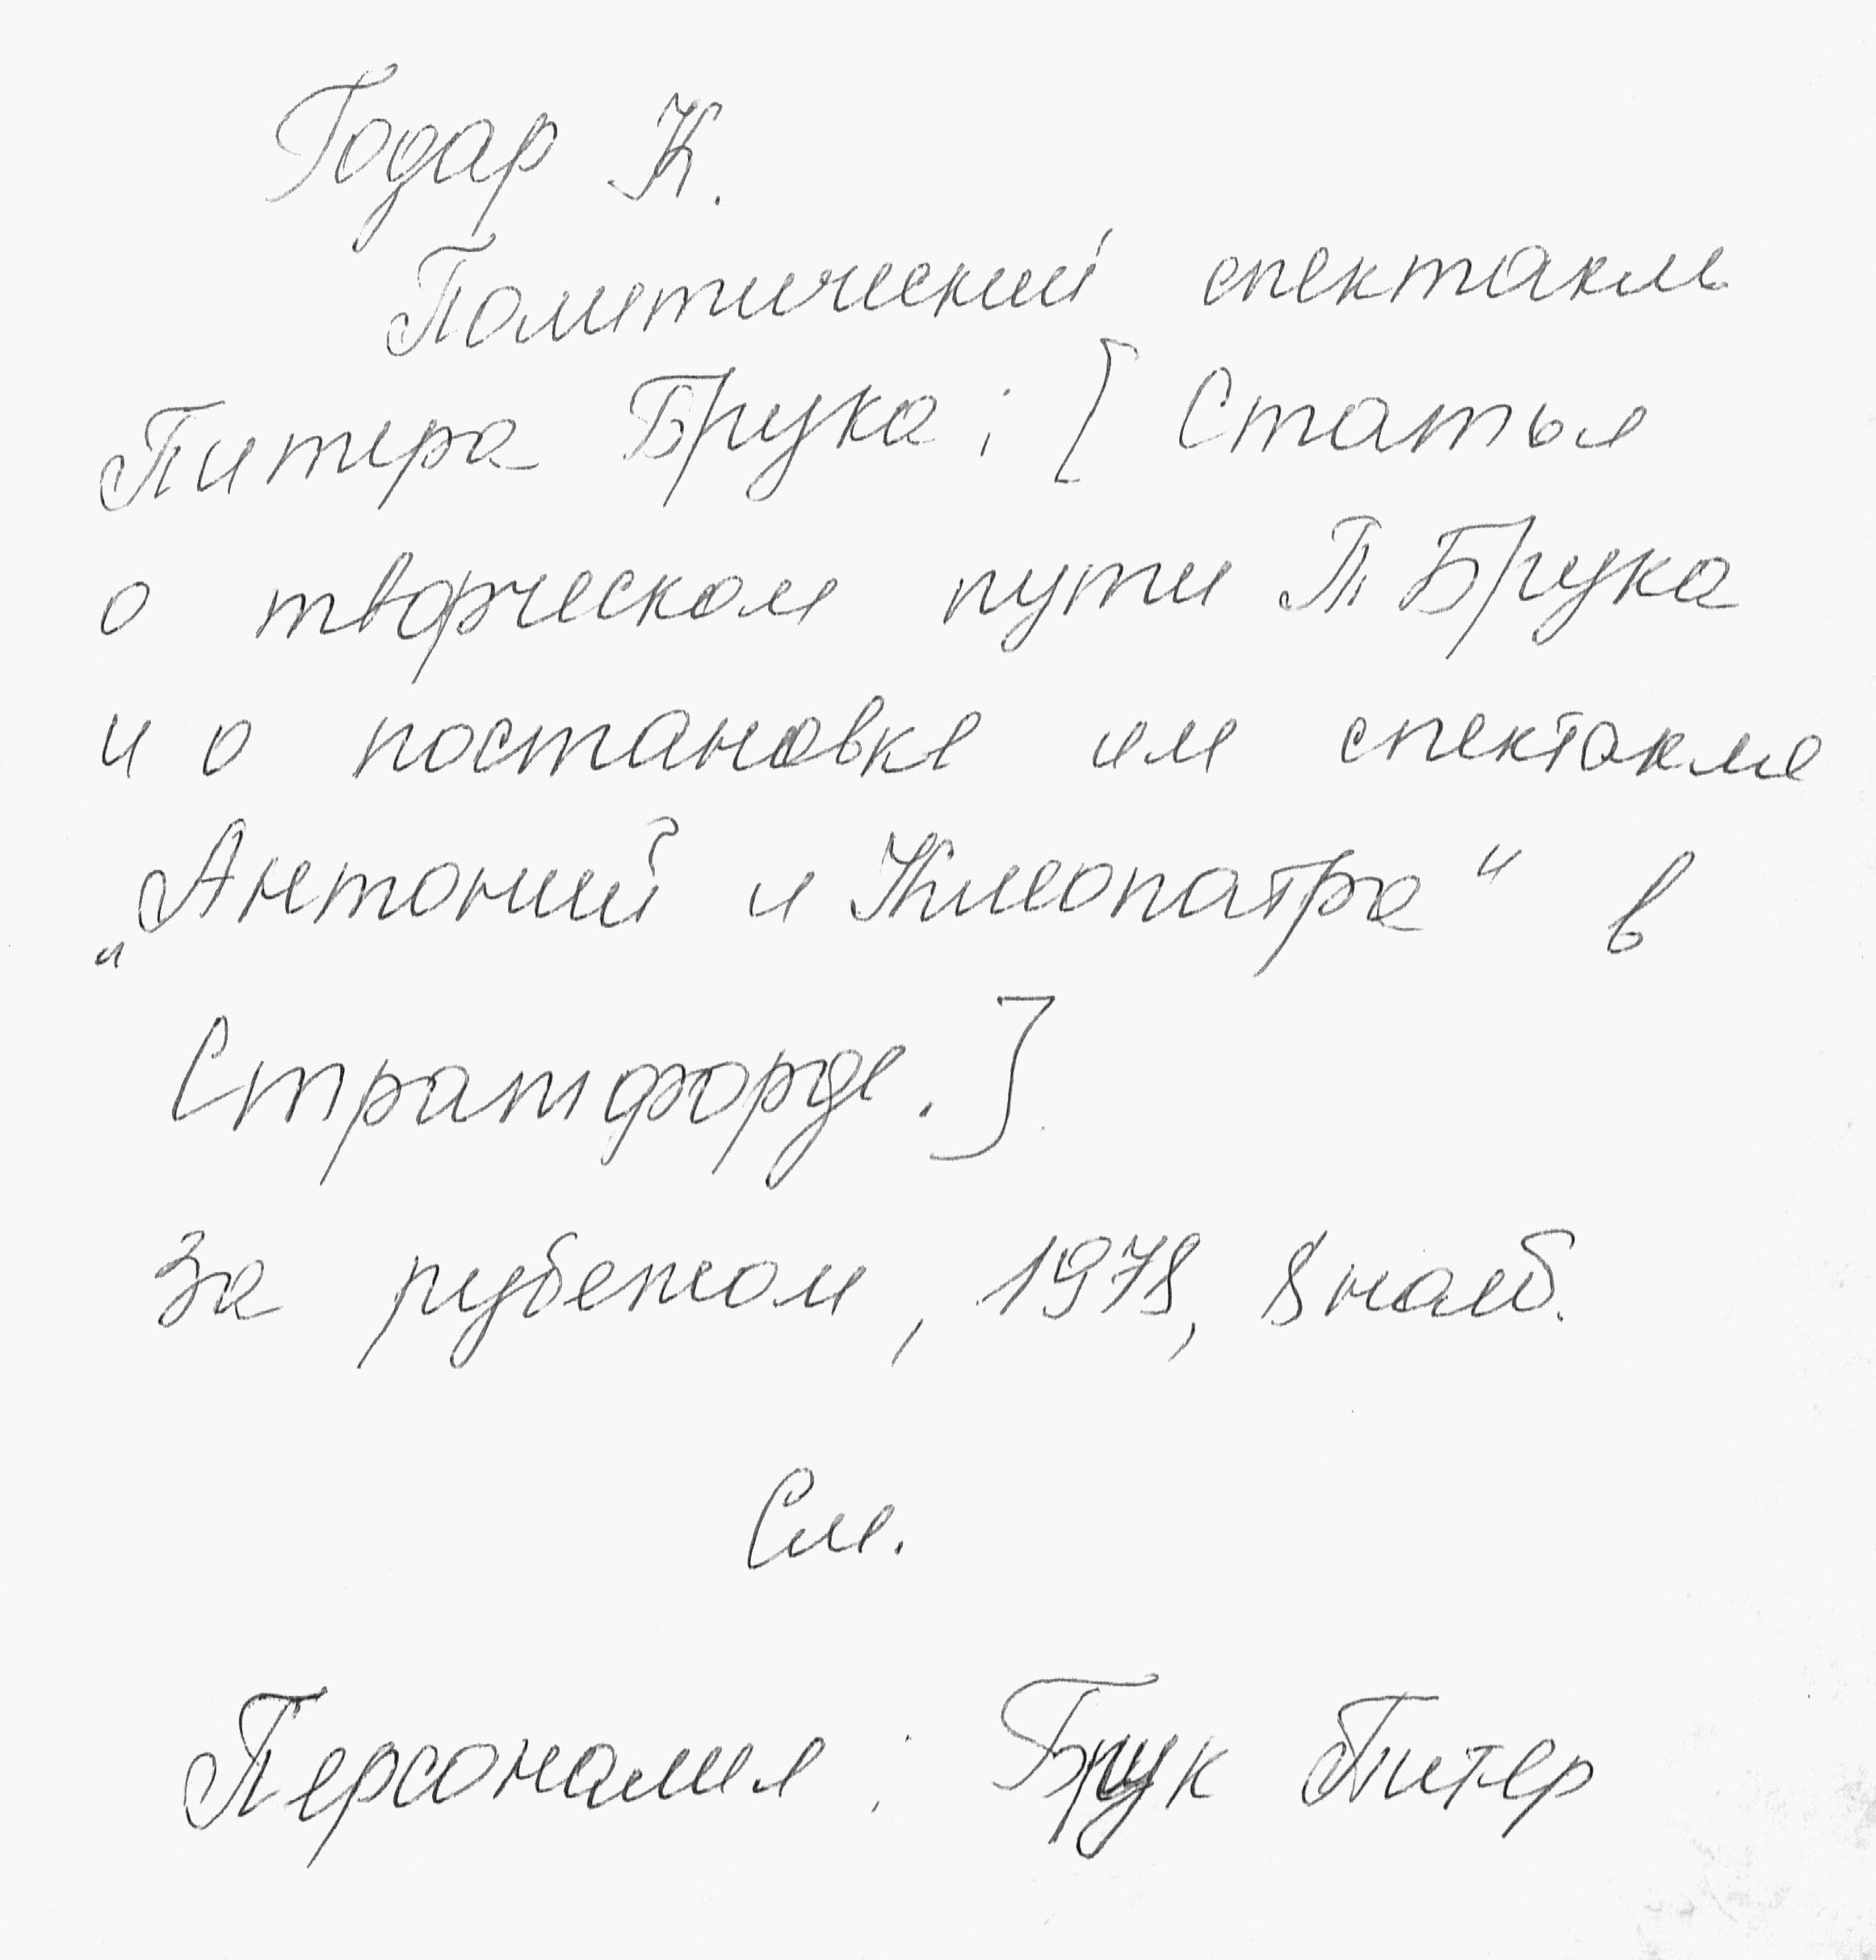 Годар К.
Политический спектакль
Питера Брука: [Статья
о творческом пути П. Брука
и о постановке им спектакля
„Антоний и Клеопатра“ в
Стратфорде.]
За рубежом, 1978, 8 нояб.
См.
Персоналия: Брук Питер